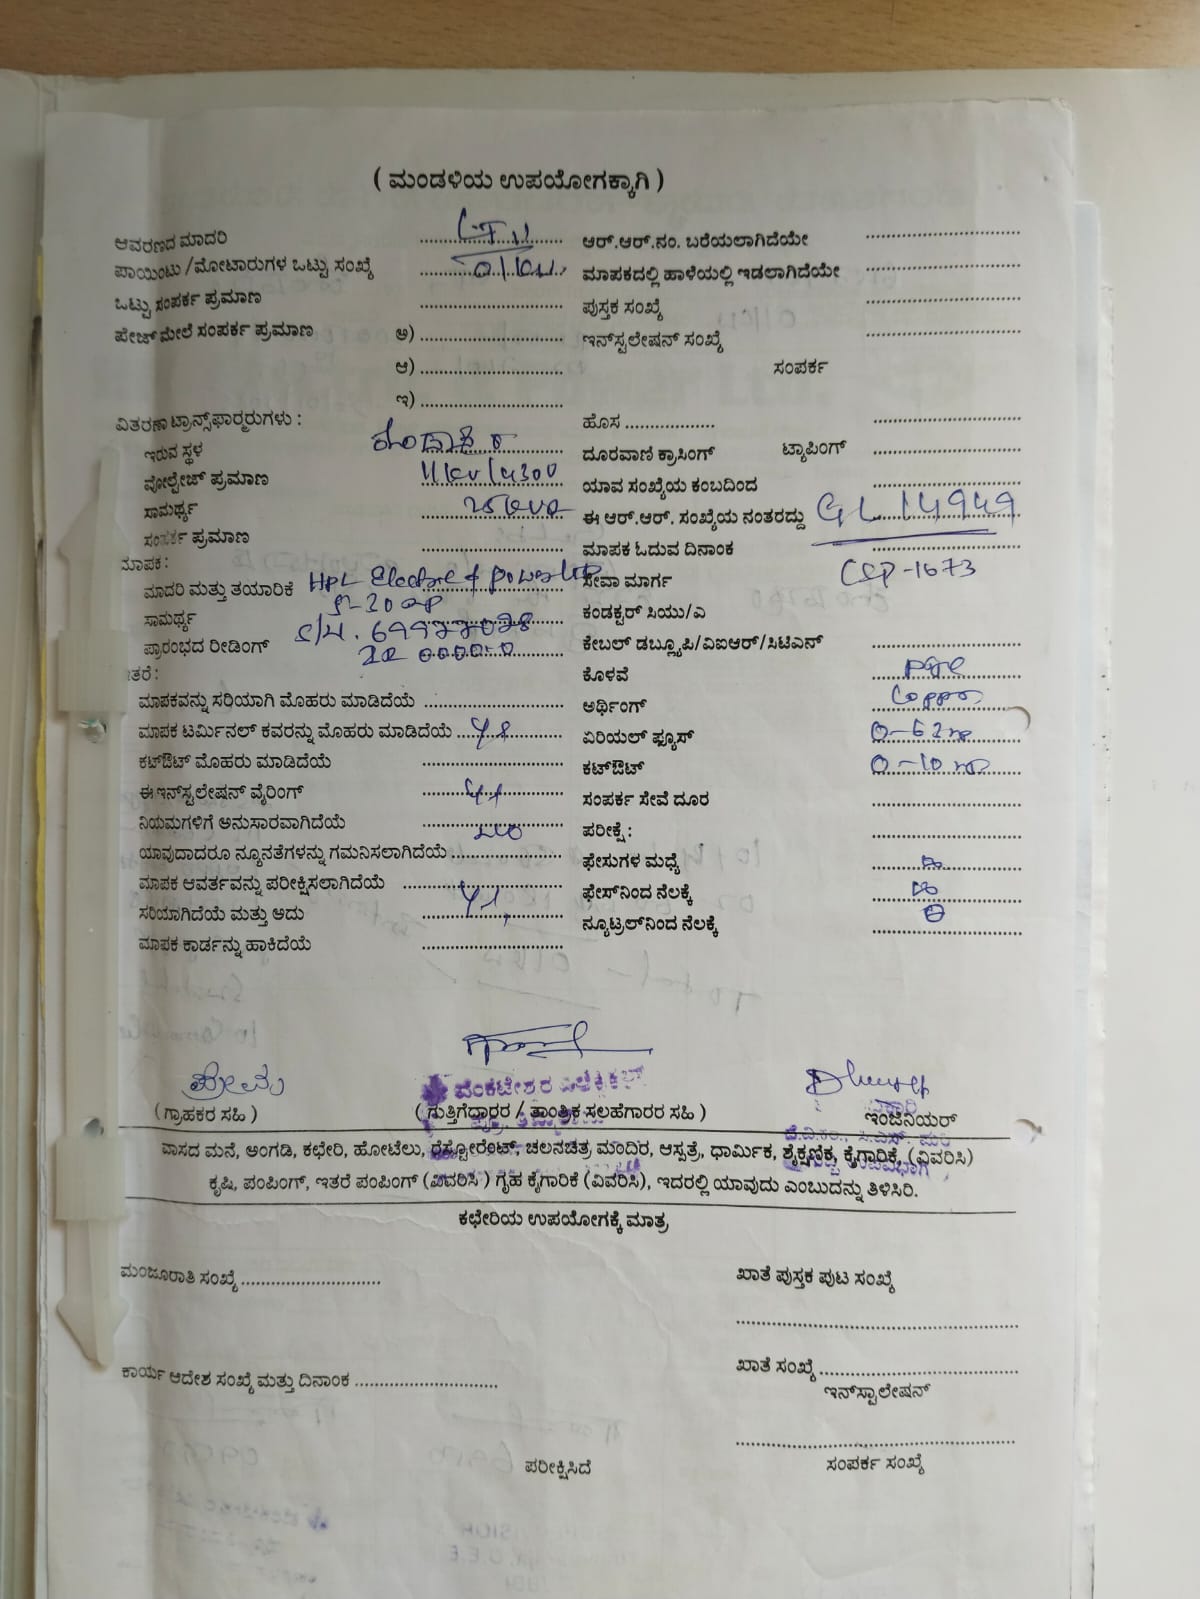 ( ಮಂಡಳಿಯ ಉಪಯೋಗಕ್ಕಾಗಿ )
ಆವರಣದ ಮಾದರಿ ........................ ಆರ್.ಆರ್.ನಂ. ಬರೆಯಲಾಗಿದೆಯೇ ........................
ಪಾಯಿಂಟು /ಮೋಟಾರುಗಳ ಒಟ್ಟು ಸಂಖ್ಯೆ ........................ ಮಾಪಕದಲ್ಲಿ ಹಾಳೆಯಲ್ಲಿ ಇಡಲಾಗಿದೆಯೇ ........................
ಒಟ್ಟು ಸಂಪರ್ಕ ಪ್ರಮಾಣ ........................ ಪುಸ್ತಕ ಸಂಖ್ಯೆ ........................
ಪೇಜ್ ಮೇಲೆ ಸಂಪರ್ಕ ಪ್ರಮಾಣ ಅ) ........................ ಇನ್‌ಸ್ಟಲೇಷನ್ ಸಂಖ್ಯೆ ........................
ಆ) ........................ ಸಂಪರ್ಕ
ಇ) ........................
ವಿತರಣಾ ಟ್ರಾನ್ಸ್‌ಫಾರ್‍ಮರುಗಳು : ಹೊಸ .................. ........................
ಇರುವ ಸ್ಥಳ ........................ ದೂರವಾಣಿ ಕ್ರಾಸಿಂಗ್ ಟ್ಯಾಪಿಂಗ್ ........................
ವೋಲ್ಟೇಜ್ ಪ್ರಮಾಣ 11kv/ ಯಾವ ಸಂಖ್ಯೆಯ ಕಂಬದಿಂದ ........................
ಸಾಮರ್ಥ್ಯ 25kva ಈ ಆರ್.ಆರ್. ಸಂಖ್ಯೆಯ ನಂತರದ್ದು GL14949
ಸಂಪರ್ಕ ಪ್ರಮಾಣ ........................ ಮಾಪಕ ಓದುವ ದಿನಾಂಕ ........................
ಮಾಪಕ :
ಮಾದರಿ ಮತ್ತು ತಯಾರಿಕೆ HPL Electric & Power Ltd ಸೇವಾ ಮಾರ್ಗ -1673
ಸಾಮರ್ಥ್ಯ ಕಂಡಕ್ಟರ್ ಸಿಯು/ಎ
ಪ್ರಾರಂಭದ ರೀಡಿಂಗ್ S/N. 69977078 ಕೇಬಲ್ ಡಬ್ಲ್ಯೂಪಿ/ವಿಐಆರ್/ಸಿಟಿಎನ್ ........................
ಇತರೆ : ಕೊಳವೆ pipe
ಮಾಪಕವನ್ನು ಸರಿಯಾಗಿ ಮೊಹರು ಮಾಡಿದೆಯೆ ........................ ಅರ್ಥಿಂಗ್ Copper
ಮಾಪಕ ಟರ್ಮಿನಲ್ ಕವರನ್ನು ಮೊಹರು ಮಾಡಿದೆಯೆ ........................ ಏರಿಯಲ್ ಫ್ಯೂಸ್ ........................
ಕಟ್‌ಔಟ್ ಮೊಹರು ಮಾಡಿದೆಯೆ ........................ ಕಟ್‌ಔಟ್ ........................
ಈ ಇನ್‌ಸ್ಟಲೇಷನ್ ವೈರಿಂಗ್ ........................ ಸಂಪರ್ಕ ಸೇವೆ ದೂರ ........................
ನಿಯಮಗಳಿಗೆ ಅನುಸಾರವಾಗಿದೆಯೆ ........................ ಪರೀಕ್ಷೆ : ........................
ಯಾವುದಾದರೂ ನ್ಯೂನತೆಗಳನ್ನು ಗಮನಿಸಲಾಗಿದೆಯೆ ........................ ಫೇಸುಗಳ ಮಧ್ಯೆ ........................
ಮಾಪಕ ಆವರ್ತವನ್ನು ಪರೀಕ್ಷಿಸಲಾಗಿದೆಯೆ ........................ ಫೇಸ್‌ನಿಂದ ನೆಲಕ್ಕೆ ........................
ಸರಿಯಾಗಿದೆಯೆ ಮತ್ತು ಅದು ........................ ನ್ಯೂಟ್ರಲ್‌ನಿಂದ ನೆಲಕ್ಕೆ ........................
ಮಾಪಕ ಕಾರ್ಡನ್ನು ಹಾಕಿದೆಯೆ ........................
ವೆಂಕಟೇಶ್ವರ
( ಗ್ರಾಹಕರ ಸಹಿ ) ( ಗುತ್ತಿಗೆದ್ದಾರರ / ತಾಂತ್ರಿಕ ಸಲಹೆಗಾರರ ಸಹಿ ) ಇಂಜಿನಿಯರ್
ವಾಸದ ಮನೆ, ಅಂಗಡಿ, ಕಛೇರಿ, ಹೋಟೆಲು, ರೆಸ್ಟೋರೆಂಟ್, ಚಲನಚಿತ್ರ ಮಂದಿರ, ಆಸ್ಪತ್ರೆ, ಧಾರ್ಮಿಕ, ಶೈಕ್ಷಣಿಕ, ಕೈಗಾರಿಕೆ, (ವಿವರಿಸಿ)
ಕೃಷಿ, ಪಂಪಿಂಗ್, ಇತರೆ ಪಂಪಿಂಗ್ (ವಿವರಿಸಿ ) ಗೃಹ ಕೈಗಾರಿಕೆ (ವಿವರಿಸಿ), ಇದರಲ್ಲಿ ಯಾವುದು ಎಂಬುದನ್ನು ತಿಳಿಸಿರಿ.
ಕಛೇರಿಯ ಉಪಯೋಗಕ್ಕೆ ಮಾತ್ರ
ಮಂಜೂರಾತಿ ಸಂಖ್ಯೆ ........................ ಖಾತೆ ಪುಸ್ತಕ ಪುಟ ಸಂಖ್ಯೆ
................................................
ಕಾರ್ಯ ಆದೇಶ ಸಂಖ್ಯೆ ಮತ್ತು ದಿನಾಂಕ ........................ ಖಾತೆ ಸಂಖ್ಯೆ ........................
ಇನ್‌ಸ್ಟಾಲೇಷನ್
................................................
ಪರೀಕ್ಷಿಸಿದೆ ಸಂಪರ್ಕ ಸಂಖ್ಯೆ